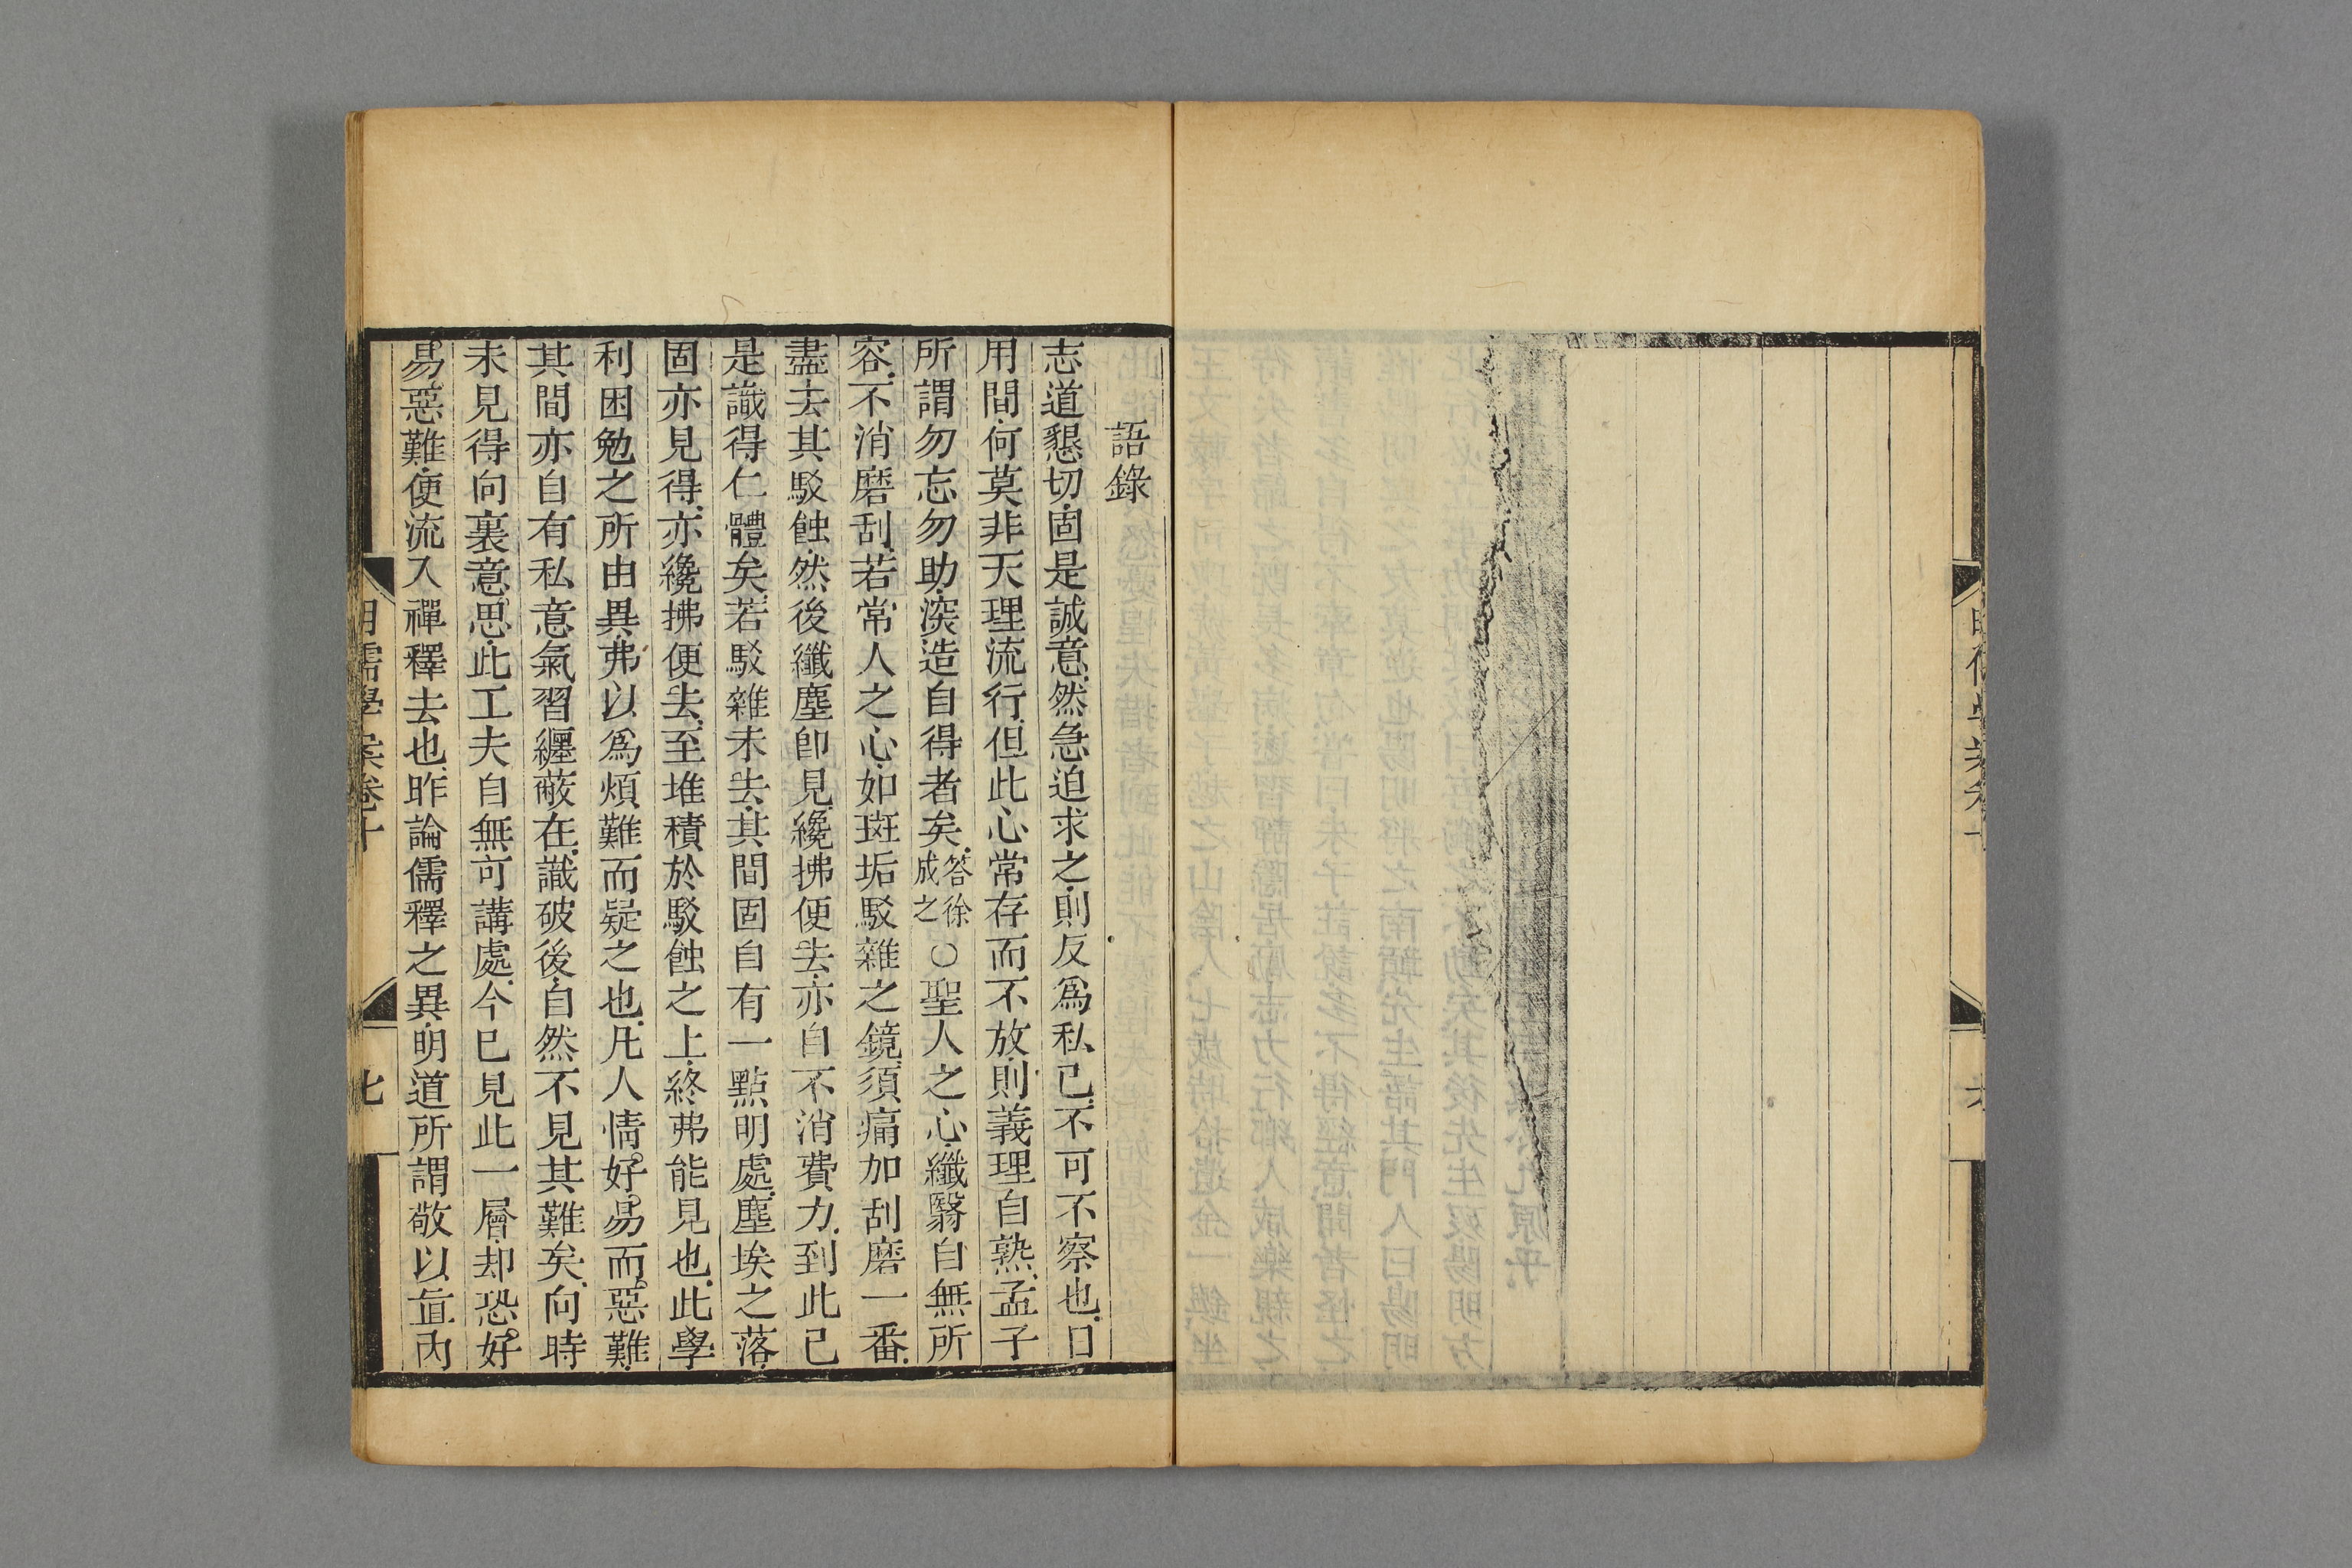 語錄
志道懇切、固是誠意、然急迫求之、則反爲私己、不可不察也、日
用間、何莫非天理流行、但此心常存而不放、則義理自熟、孟子
所謂勿忘勿助、深造自得者矣、答徐成之○聖人之心、纖翳自無所
容、不消磨刮、若常人之心、如斑垢駁雜之鏡、須痛加刮磨一番、
盡去其駁蝕、然後纖塵卽見、纔拂便去、亦自不消費力、到此已
是識得仁體矣、若駁雜未去、其間固自有一點明處、塵埃之落、
固亦見得、亦纔拂便去、至堆積於駁蝕之上、終弗能見也、此學
利困勉之所由異、弗以爲煩難而疑之也、凡人情好易而惡難、
其間亦自有私意氣習纏蔽在、識破後、自然不見其難矣、向時
未見得向裏意思、此工夫自無可講處、今已見此一層、却恐好
易惡難、便流入禪釋去也、昨論儒釋之異、明道所謂敬以直內
明儒學案卷十
七